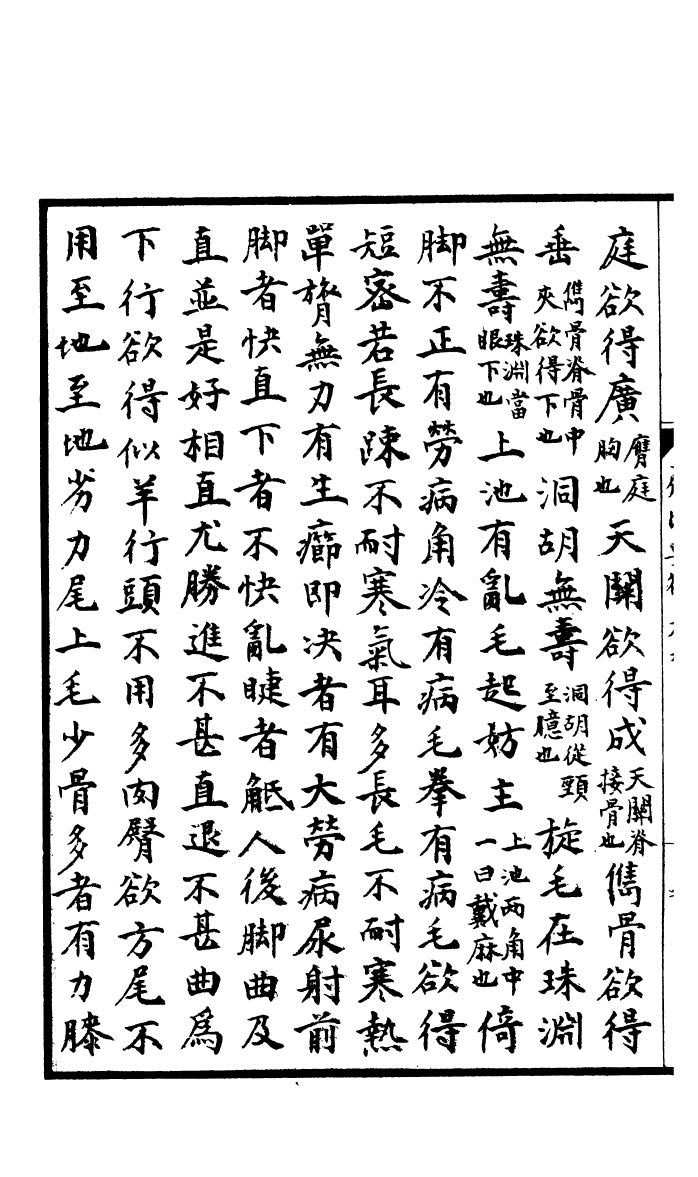 庭欲得廣膺庭胸也天關欲得成天關脊接骨也儁骨欲得
垂儁骨脊骨中夾欲得下也洞胡無壽洞胡從頸至臆也旋毛在珠淵
無壽珠淵當眼下也上池有亂毛起妨主上池兩角中一曰戴麻也倚
脚不正有勞病角冷有病毛拳有病毛欲得
短密若長踈不耐寒氣耳多長毛不耐寒熱
單膂無力有生癤即决者有大勞病尿射前
脚者快直下者不快亂睫者觝人後脚曲及
直並是好相直尤勝進不甚直退不甚曲爲
下行欲得似羊行頭不用多肉臀欲方尾不
用至地至地劣力尾上毛少骨多者有力膝